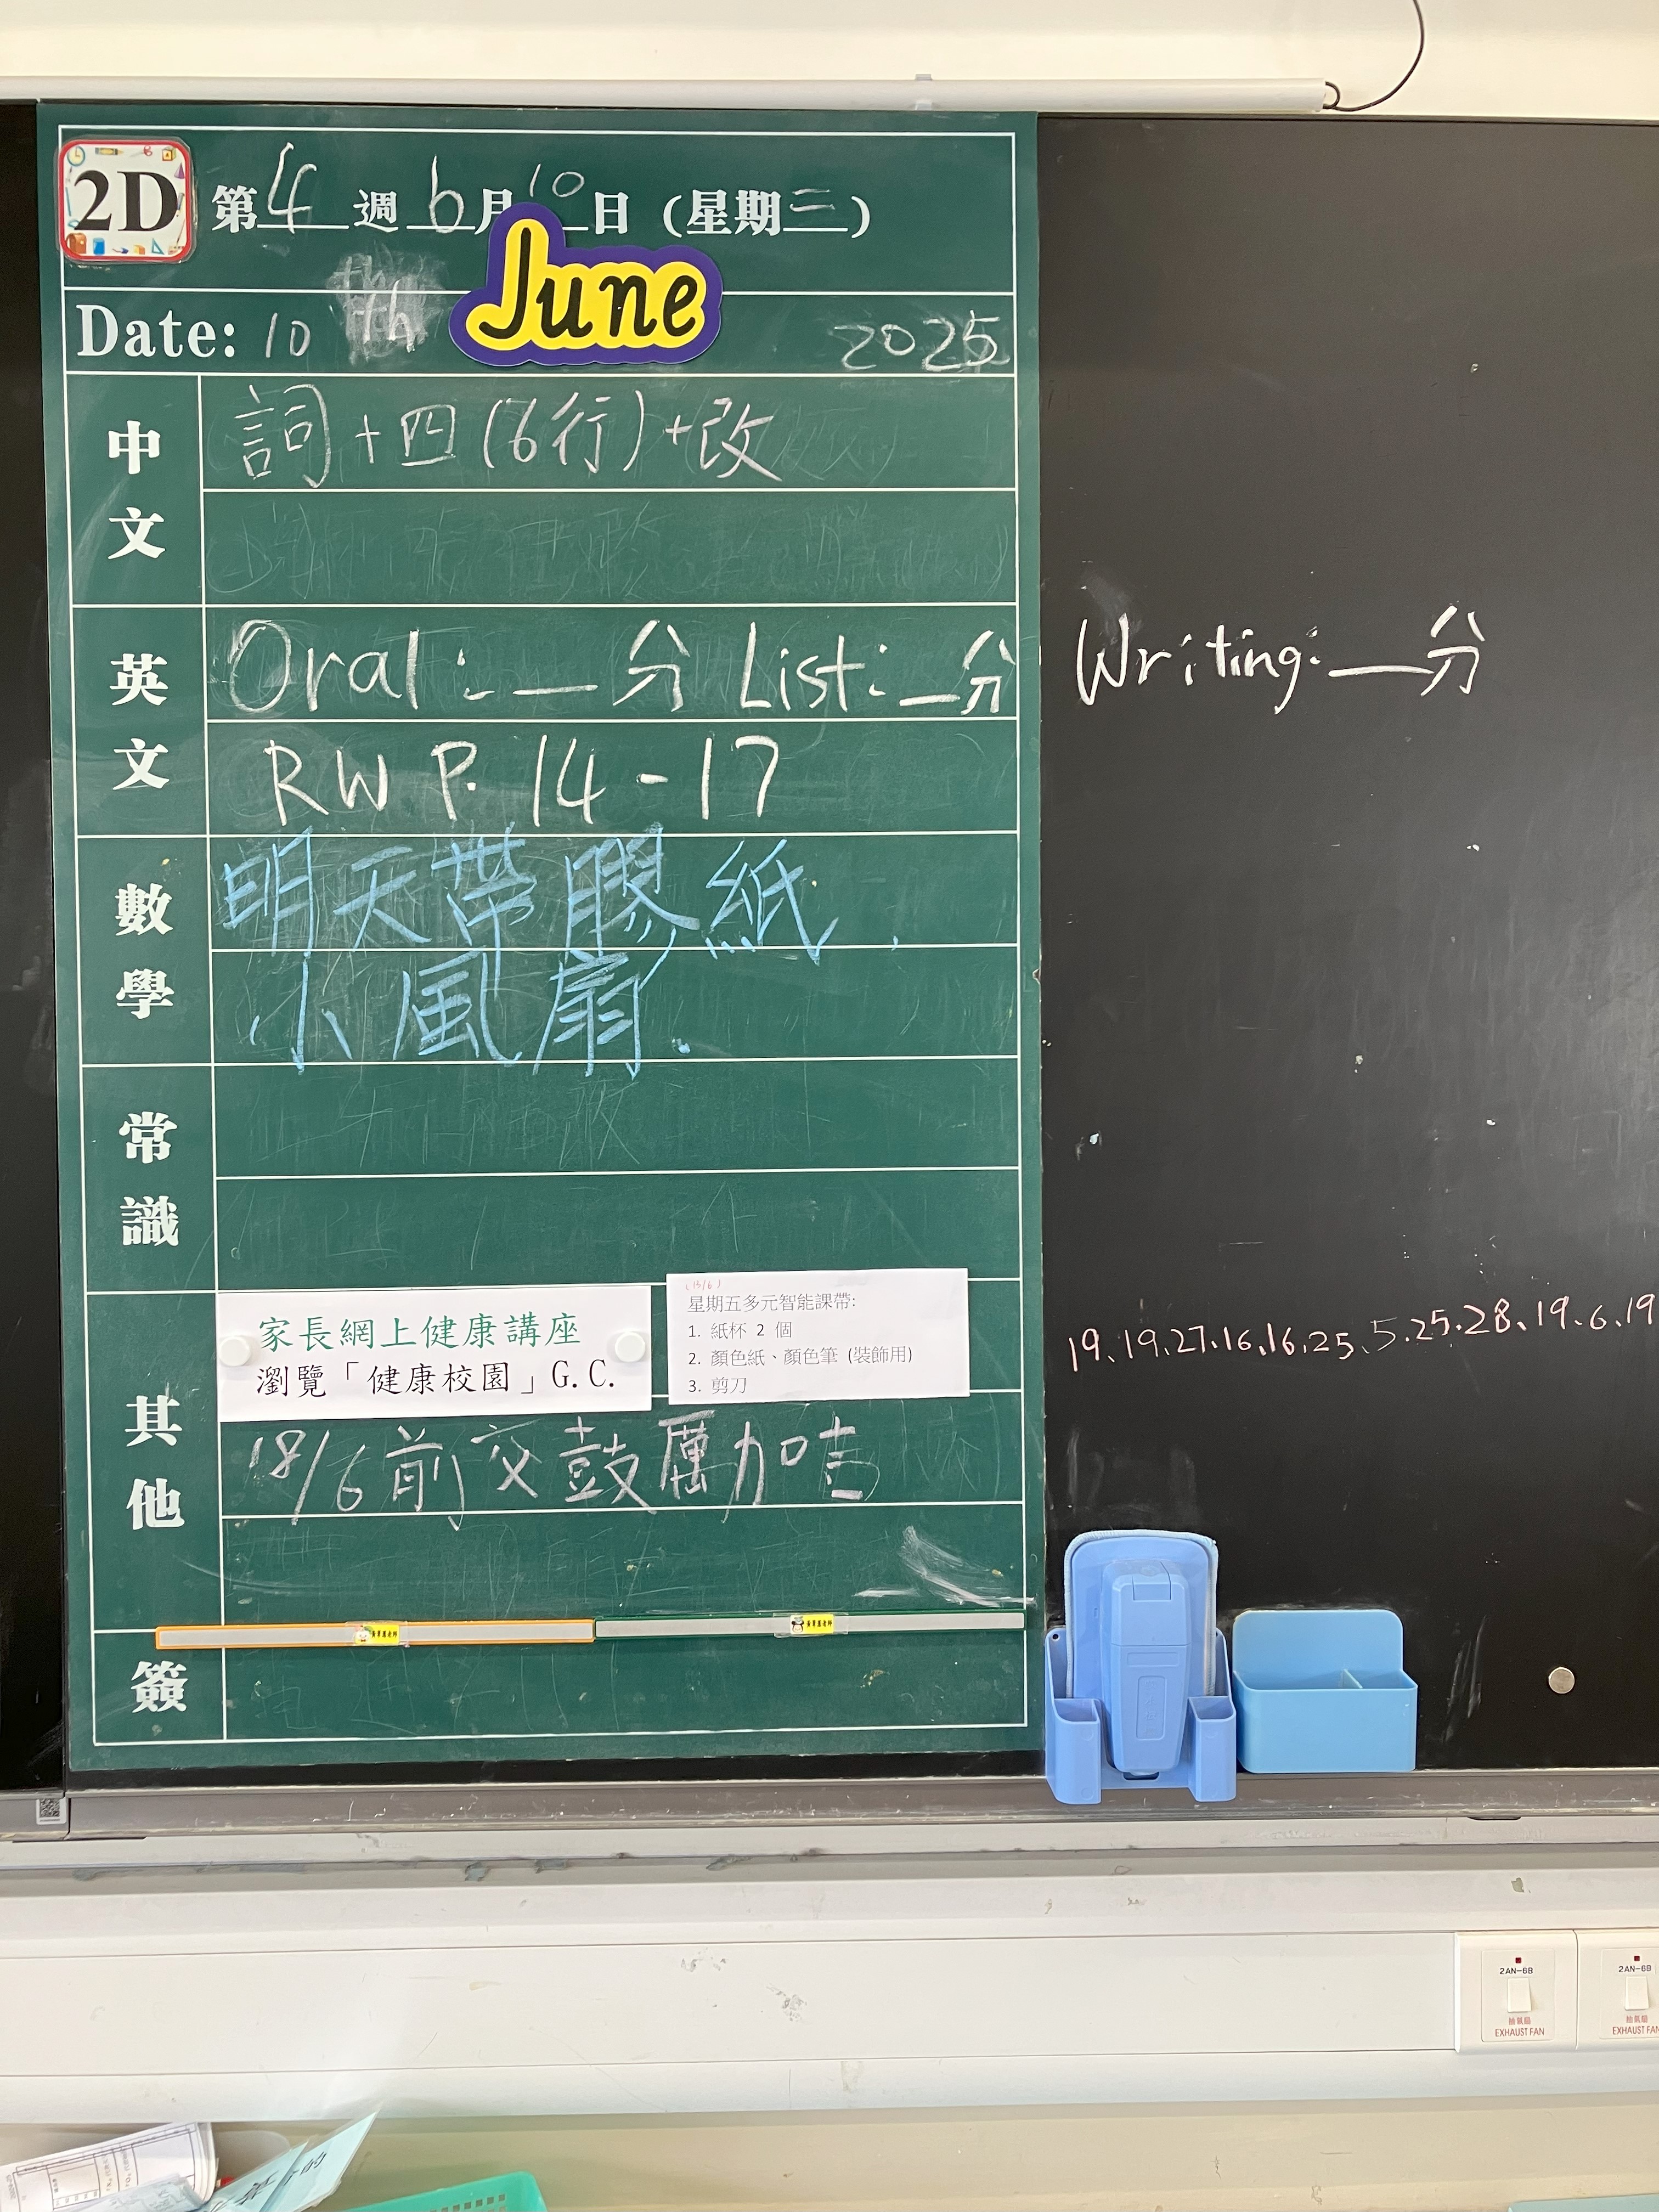 2D
第4週6月10日（星期二）
June
Date: 10 th 2025
中文
詞+四(6行)+改
英文
Oral:__分 List:__分 Writing:__分
RW P. 14-17
數學
明天帶膠紙,
小風扇.
常識
其他
家長網上健康講座
瀏覽「健康校園」G.C.
(13/6)
星期五多元智能課帶:
1. 紙杯 2 個
2. 顏色紙、顏色筆 (裝飾用)
3. 剪刀
19、19、27、16、16、25、5、25、28、19、6、19
18/6前交鼓厲加吉
簽
2AN-6B
抽氣扇
EXHAUST FAN
2AN-6B
抽氣扇
EXHAUST FAN